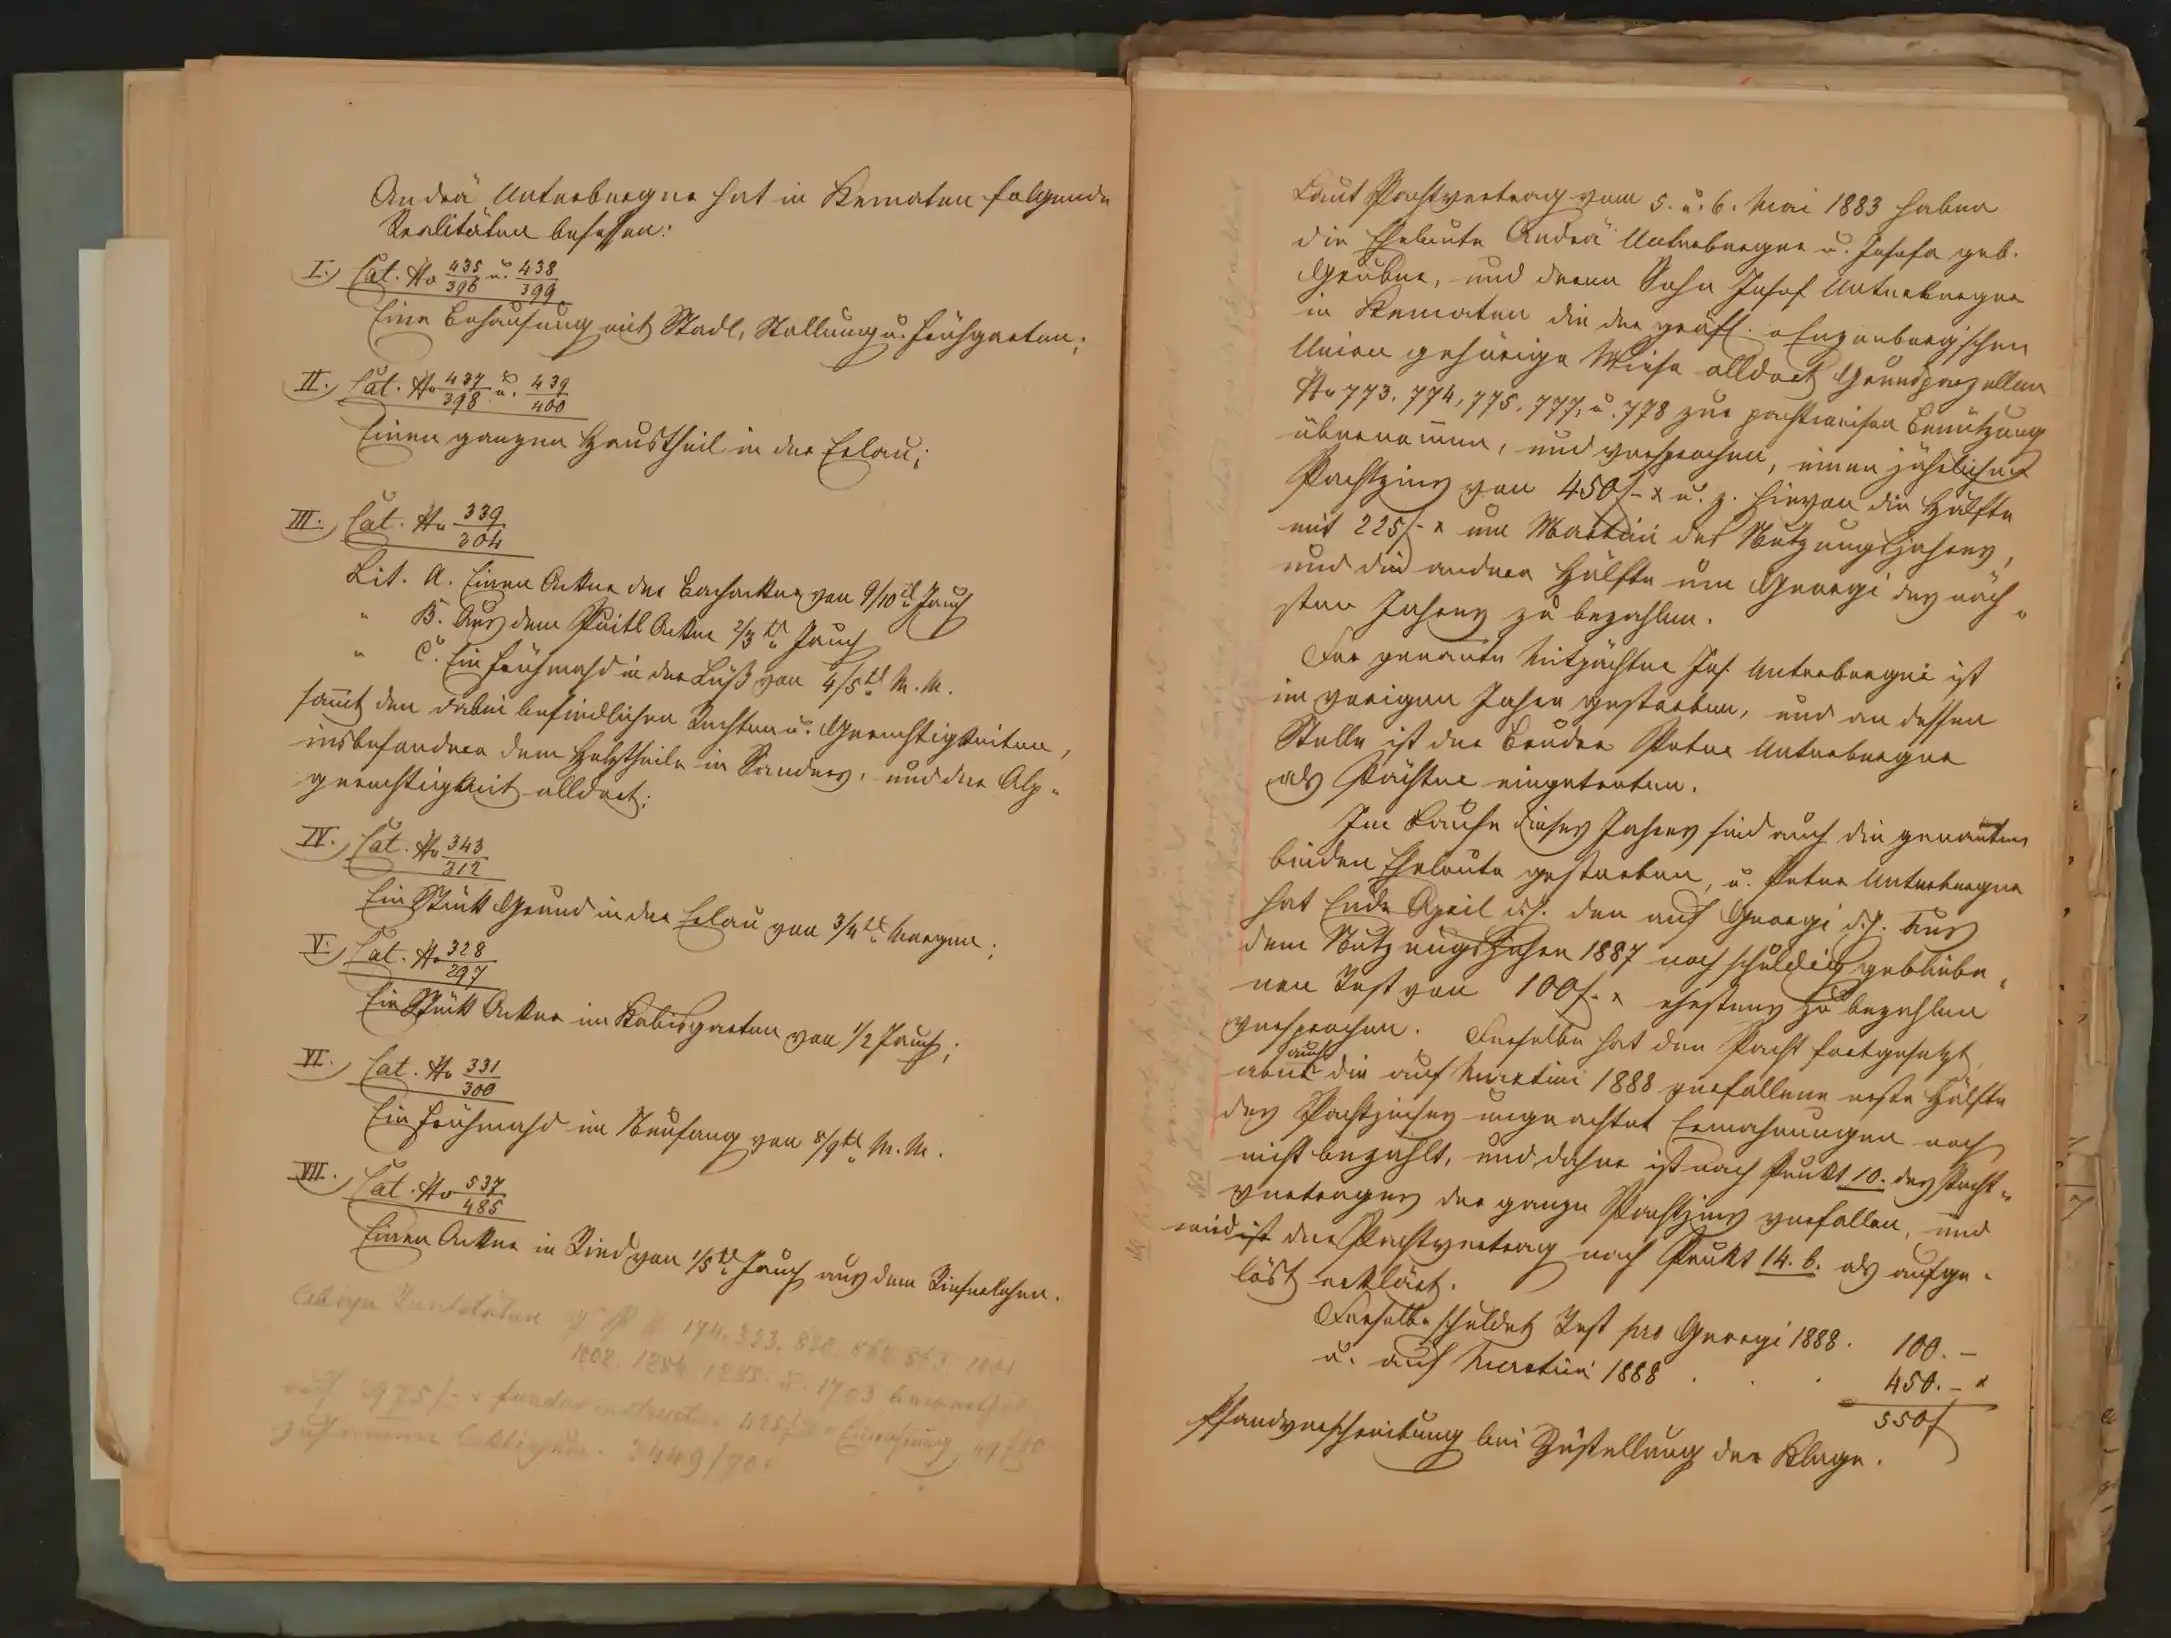 Andrä Unterberger hat in Kematen folgende
Realitäten besessen:
I. Cat. No 435/396 u. 438/399
Eine Behausung mit Stadl, Stallung u. Frühgarten;
II. Cat. No 437/398 u. 439/400
Einen ganzen Haustheil in der Erlau;
III. Cat. No 339/304
Lit. A. Einen Acker der Bachacker von 9/10tl Jauch
" B. Aus dem Puitl Acker 2/3tl Jauch
" C. Ein Frühmahd in der Lüß von 4/5tl M. M.
sammt den dabei befindlichen Rechten u. Gerechtigkeiten,
insbesondere dem Holztheile in Sanders, und der Alp-
gerechtigkeit alldort;
IV. Cat. No 343/312
Ein Stück Grund in der Erlau von 3/4tl Morgen;
V. Cat. No 328/297
Ein Stück Acker im Kabisgarten von 1/2 Jauch;
VI. Cat. No 331/300
Ein Frühmahd im Neufang von 8/9tl M. M.
VII. Cat. No 537/485
Einen Acker in Ried von 1/5tl Jauch aus dem Rieserlehen.
Obige Realitäten 174, 323,
1002. 1703
425 f
3449 f
Laut Pachtvertrag vom 5. u. 6. Mai 1883 haben
die Eheleute Andrä Unterberger u. Josefa geb.
Gruber, und deren Sohn Josef Unterberger
in Kematen die der gräfl. v Enzenberg'schen
Union gehörige Wiese alldort Grundparzellen
No 773, 774, 775, 777, u. 778 zur pachtweisen Benützung
übernommen, und versprochen, einen jährlichen
Pachtzins von 450 f - x u. z. hievon die Hälfte
mit 225 f - x um Martini des Nutzungsjahres,
und die andere Hälfte um Georgi des näch-
sten Jahres zu bezahlen.
Der genannte Mitpächter Jos. Unterberger ist
im vorigen Jahre gestorben, und an dessen
Stelle ist der Bruder Peter Unterberger
als Pächter eingetreten.
Im Laufe dieses Jahres sind auch die genannten
beiden Eheleute gestorben, u. Peter Unterberger
hat Ende April d. J. den auf Georgi d. J. aus
dem Nutzungsjahre 1887 noch schuldig gebliebe-
nen Rest von 100 f - x ehestens zu bezahlen
versprochen. Derselbe hat den Pacht fortgesetzt,
aber auch die auf Martini 1888 verfallene erste Hälfte
des Pachtzinses ungeachtet Ermahnungen noch
nicht bezahlt, und daher ist nach Punkt 10. des Pacht-
vertrages der ganze Pachtzins verfallen, und
wird ist der Pachtvertrag nach Punkt 14. b. als aufge-
löst erklärt.
Derselbe schuldet Rest pro Georgi 1888. 100. -
u. auf Martini 1888 . . 450. - x
550 f
Pfandverschreibung bei Zustellung der Klage.